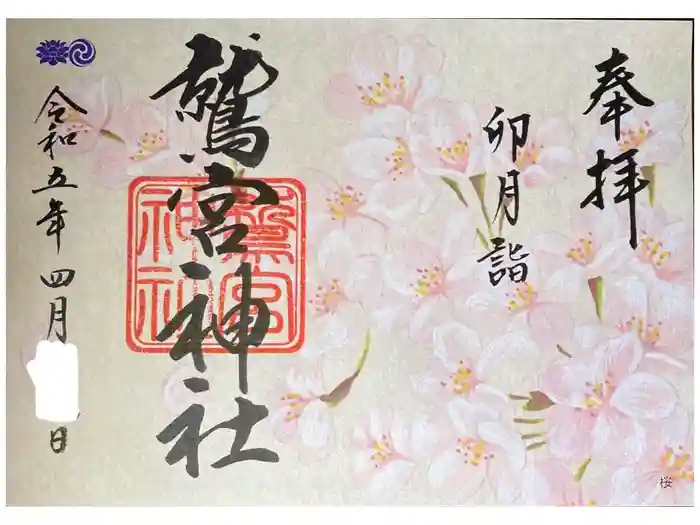 奉拝
卯月詣
鷲宮神社
鷲宮
神社
令和五年四月
日
桜